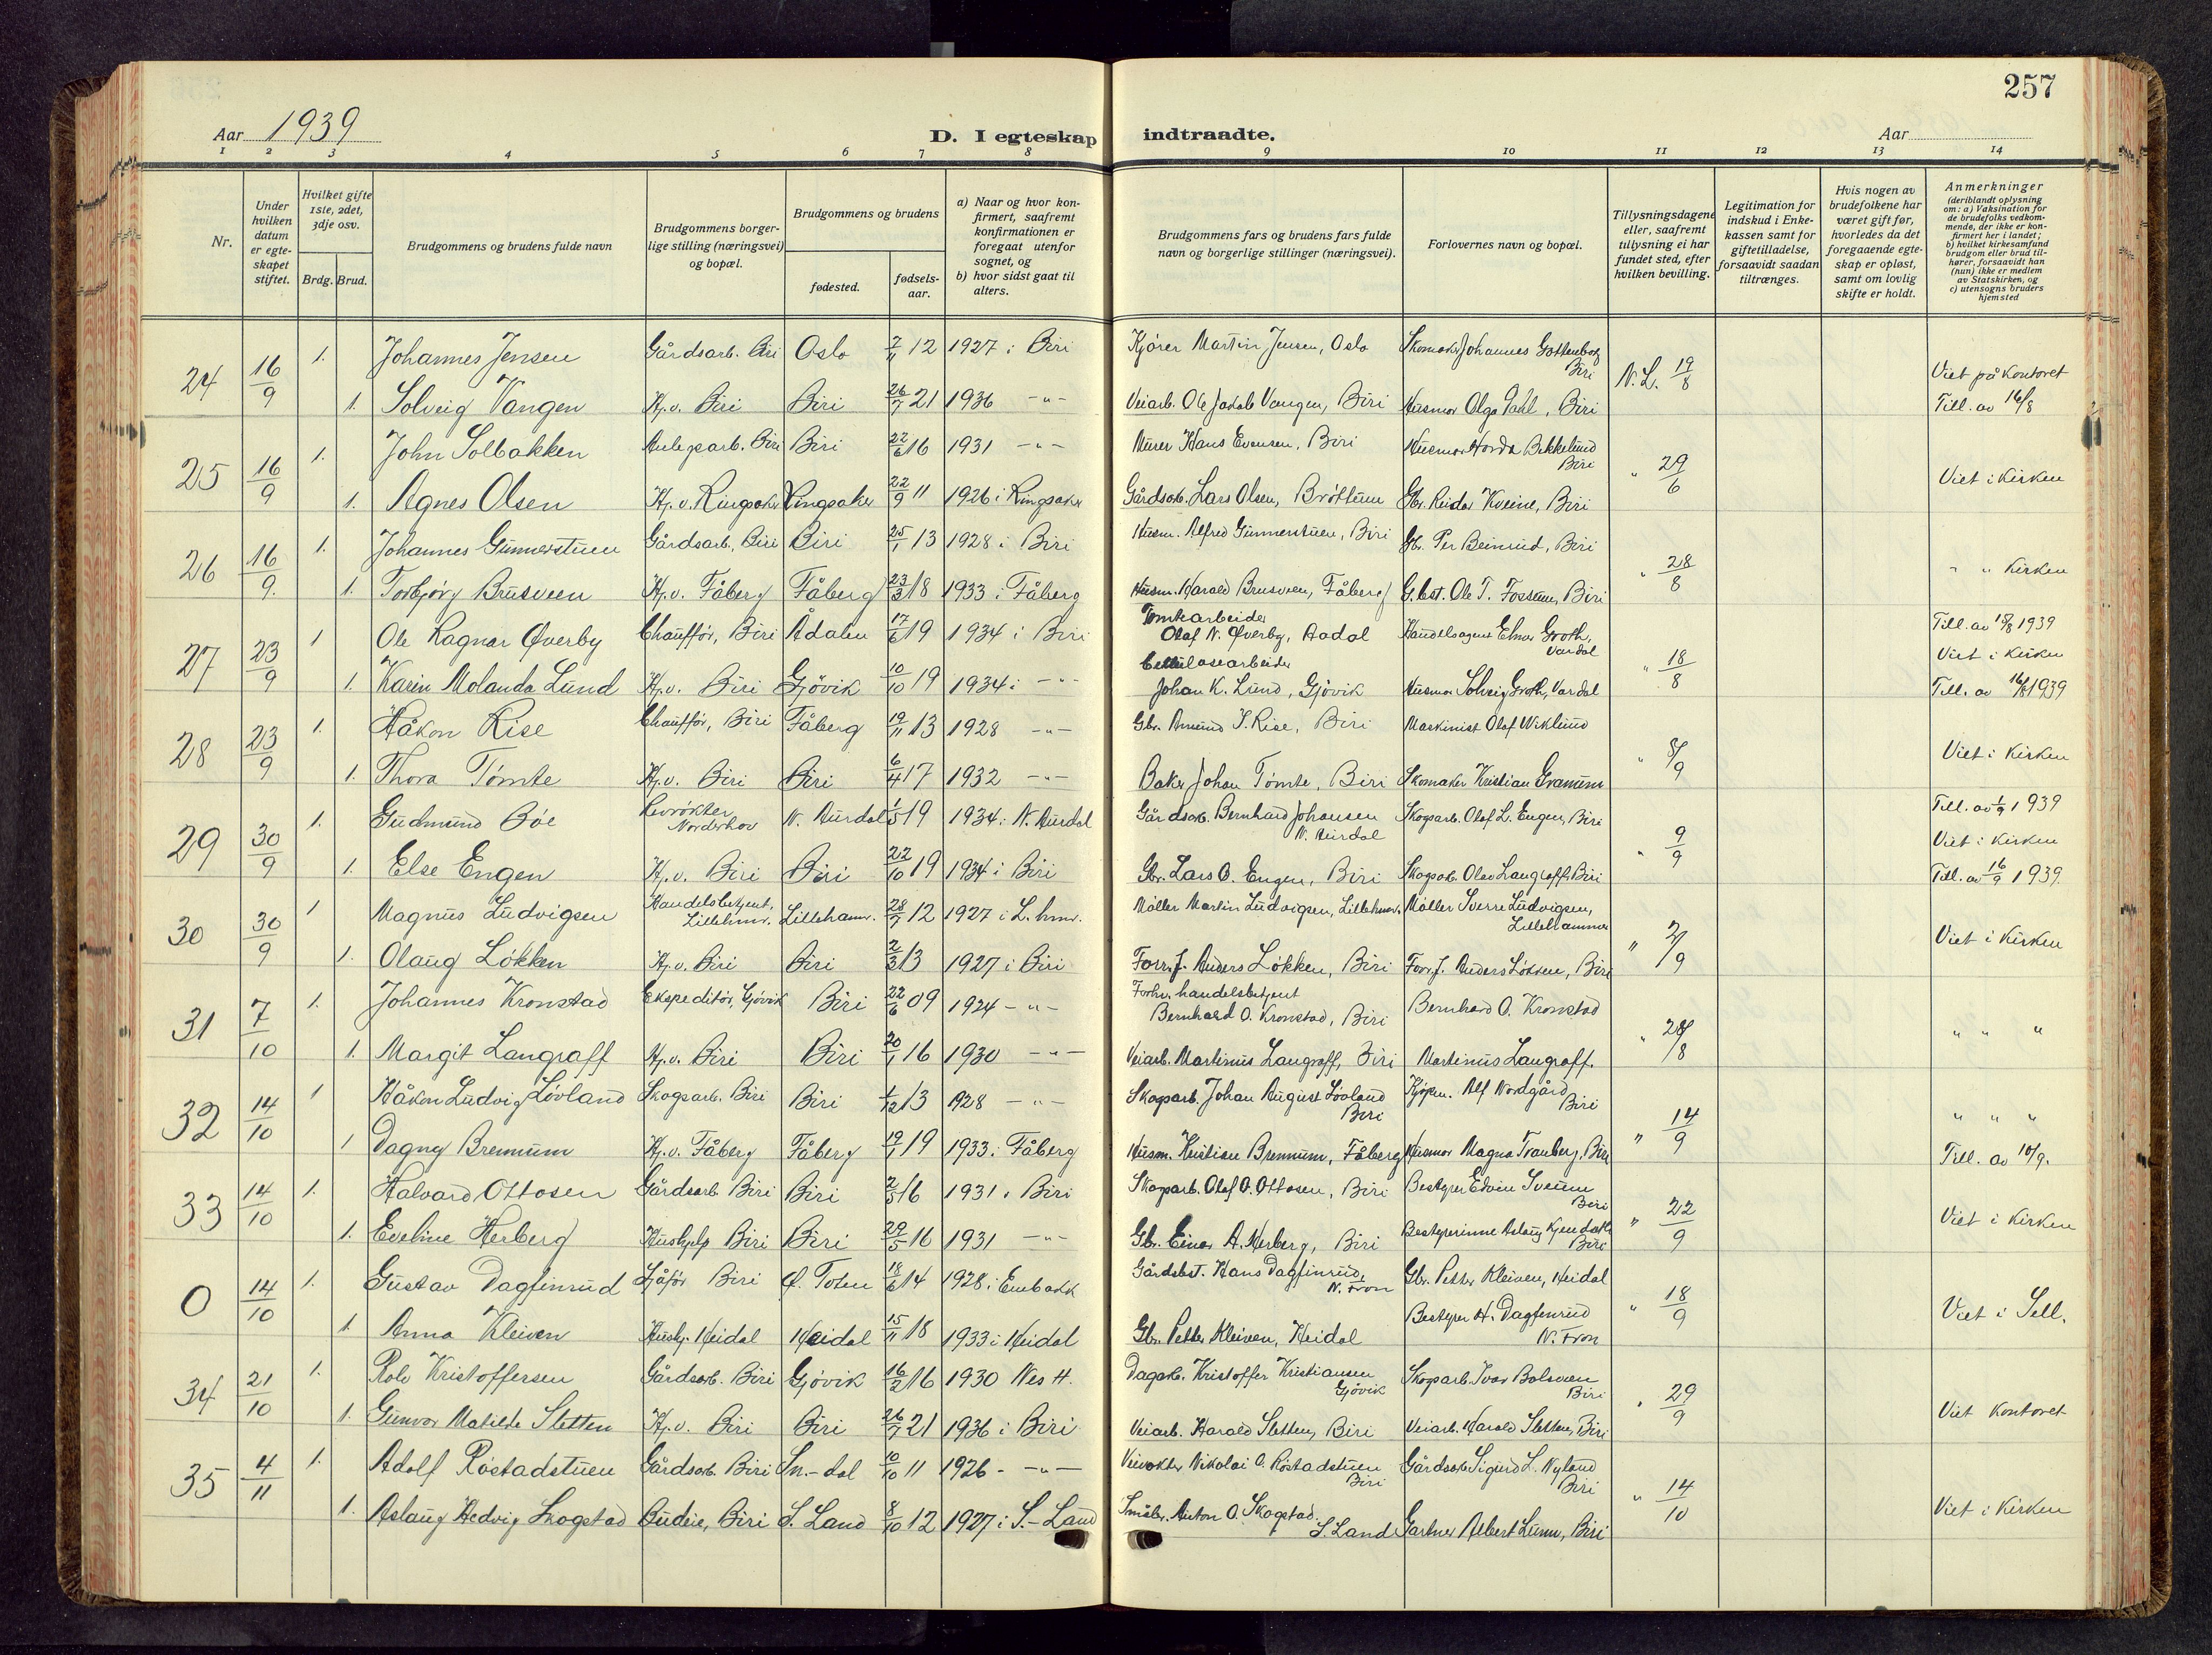 257
Aar 1939
D. I egteskap indtraadte.
Aar
1 2 3 4 5 6 7 8 9 10 11 12 13 14
Nr.
Under hvilken datum er egteskapet stiftet.
Hvilket gifte 1ste, 2det, 3dje osv.
Brdg. Brud.
Brudgommens og brudens fulde navn
Brudgommens borgerlige stilling (næringsvei) og bopæl.
Brudgommens og brudens
fødested.
fødselsaar.
a) Naar og hvor konfirmert, saafremt konfirmationen er foregaat utenfor sognet, og
b) hvor sidst gaat til alters.
Brudgommens fars og brudens fars fulde navn og borgerlige stillinger (næringsvei).
Forlovernes navn og bopæl.
Tillysningsdagene eller, saafremt tillysning ei har fundet sted, efter hvilken bevilling.
Legitimation for indskud i Enkekassen samt for giftetilladelse, forsaavidt saadan tiltrænges.
Hvis nogen av brudefolkene har været gift før, hvorledes da det foregaaende egteskap er opløst, samt om lovlig skifte er holdt.
Anmerkninger (deriblandt oplysning om: a) Vaksination for de brudefolks vedkommende, der ikke er konfirmert her i landet; b) hvilket kirkesamfund brudgom eller brud tilhører, forsaavidt han (hun) ikke er medlem av Statskirken, og c) utensogns bruders hjemsted
24 16/9 1. Johannes Jensen Gårdsarb. Biri Oslo 7/11 12 1927 i Biri Kjører Martin Jensen, Oslo Skomaker Johannes Gottenborg Biri N.L. 19/8 Viet på kontoret
1. Solveig Vangen Hj.v. Biri Biri 26/7 21 1936 -"- Veiarb. Ole Jakob Vangen, Biri Husmor Olga Dahl, Biri Till. av 16/8
25 16/9 1. John Solbakken Anlegsarb. Biri Biri 22/6 16 1931 -"- Murer Hans Evensen, Biri Husmor Horda Bekkelund Biri " 29/6 Viet i Kirken
1. Agnes Olsen Hj.v. Ringsaker Ringsaker 22/9 11 1926 i Ringsaker Gårdsarb. Lars Olsen, Brøttum Gbr. Reidar Kveine, Biri
26 16/9. 1. Johannes Gunnerstuen Gårdsarb, Biri Biri 25/1 13 1928 i Biri Husm. Alfred Gunnerstuen, Biri Gbr. Per Beinrud, Biri " 28/8 " " Kirken
1. Torbjørg Brusveen Hj.v. Fåberg Fåberg 23/3 18 1933 i Fåberg Husm. Harald Brusveen, Fåberg G.best. Ole T. Fossum, Biri
27 23/9 1 Ole Ragnar Øverby Chauffør, Biri Ådalen 17/6 19 1934 i Biri Tomtearbeider Olaf N. Øverby, Aadal Handelsagent Elmer Groth, Vardal " 18/8 Till. av 18/8 1939
Viet i Kirken
1. Karin Molanda Lund Hj.v. Biri Gjøvik 10/10 19 1934 i -"- Cellulosearbeider Johan K. Lund, Gjøvik Husmor Solveig Groth, Vardal Till. av 16/8 1939
28 23/9 1. Håkon Rise Chauffør, Biri Fåberg 19/11 13 1928 -"- Gbr. Amund S. Rise, Biri Maskinist Olaf Wiklund " 8/9 Viet i Kirken
1. Thora Tømte Hj.v. Biri Biri 6/4 17 1932 -"- Baker Johan Tømte, Biri Skomaker Kristian Granum
29 30/9 1. Gudmund Bøe Revrøkter Norderhov N. Aurdal 1/5 19 1934 i N. Aurdal Gårdsarb. Bernhard Johansen N. Aurdal Skogsarb. Olaf L. Engen, Biri " 9/9 Till. av 1/9 1939
Viet i Kirken
1. Else Engen Hj.v. Biri Biri 22/10 19 1934 i Biri Gbr. Lars O. Engen, Biri Skogsarb. Olav Langraff, Biri Till. av 16/9 1939.
30 30/9 1 Magnus Ludvigsen Handelsbetjent, Lillehmr. Lillehamr. 28/7 12 1927 i L.hmr. Møller Martin Ludvigsen, Lillehmr. Møller Sverre Ludvigsen, Lillehammer " 2/9 Viet i Kirken
1. Olaug Løkken Hj.v. Biri Biri 2/3 13 1927 i Biri Forr.f. Anders Løkken, Biri Forr.f. Anders Løkken, Biri
31 7/10 1. Johannes Kronstad Ekspeditør, Gjøvik Biri 22/6 09 1924 -"- Forhv. handelsbetjent Bernhard O. Kronstad, Biri Bernhard O. Kronstad " 28/8 " " "
1. Margit Langraff Hj.v. Biri Biri 20/1 16 1930 -"- Veiarb. Martinus Langraff, Biri Martinus Langraff.
32 14/10 1 Håkon Ludvig Løvland Skogsarb. Biri Biri 1/12 13 1928 -"- Skogsarb. Johan August Løvland Biri Kjøpm. Alf Nordgård Biri " 14/9 " " "
1 Dagny Brennum Hj.v. Fåberg Fåberg 19/1 19 1933 i Fåberg Husm. Kristian Brennum, Fåberg Husmor Magna Tranberg, Biri Till. av 10/9.
33 14/10 1. Halvard Ottosen Gårdsarb. Biri Biri 2/5 16 1931 i Biri Skogsarb. Olaf O. Ottosen, Biri Bestyrer Edvin Sveum Biri " 22/9 Viet i Kirken
1. Eveline Herberg Hushjelp Biri Biri 29/5 16 1931 -"- Gbr. Einar A. Herberg, Biri Bestyrerinne Aslaug Kjendseth Biri
0 14/10 1. Gustav Dagfinrud Sjåfør Biri Ø. Toten 18/6 14 1928 i Gårdsbst. Hans Dagfinrud, N. Fron Gbr. Petter Kleiven, Heidal " 18/9 Viet i Sell.
1 Anna Kleiven Hushj. Heidal Heidal 15/11 18 1933 i Heidal Gbr. Petter Kleiven, Heidal Bestyrer H. Dagfinrud N. Fron
34 21/10 1. Rolv Kristoffersen Gårdsarb. Biri Gjøvik 16/2 16 1930 Nes H. Dagarb. Kristoffer Kristiansen Gjøvik Skogsarb. Ivar Bolsveen Biri " 29/9 Viet Kontoret
1. Gunvor Matilde Sletten Hj.v. Biri Biri 26/7 21 1936 i Biri Veiarb. Harald Sletten, Biri Veiarb. Harald Sletten, Biri
35 4/11 1. Adolf Røstadstuen Gårdsarb. Biri Sn.-dal 10/10 11 1926 - -"- Veivokter Nikolai O. Røstadstuen Biri Gårdsarb. Sigurd L. Nyland Biri " 14/10 Viet i Kirken
1. Aslaug Hedvig Skogstad Budeie, Biri S. Land 8/10 12 1927 i S.-Land Småbr. Anton O. Skogstad. S. Land Gartner Albert Lunn, Biri